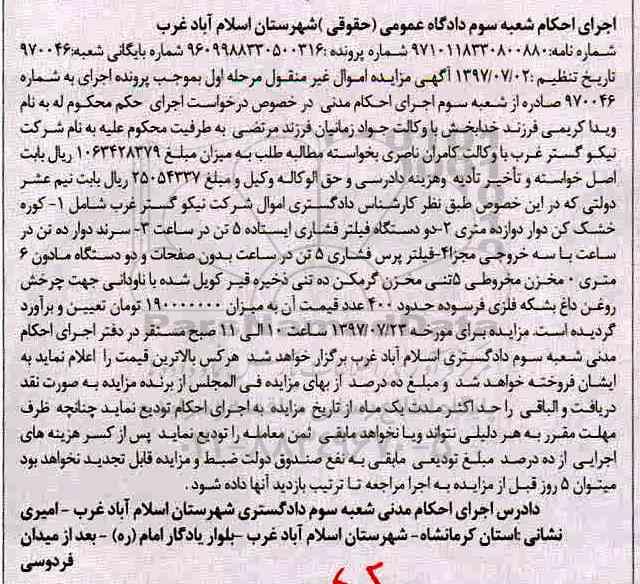 اجرای احکام شعبه سوم دادگاه عمومی (حقوقی )شهرستان اسلام آباد غرب
شماره نامه:۹۷۱۰۱۱۸۳۳۰۸۰۰۸۸۰ شماره پرونده :۹۶۰۹۹۸۸۳۳۰۵۰۰۳۱۶ شماره بایگانی شعبه:۹۷۰۰۴۶
تاریخ تنظیم :۱۳۹۷/۰۷/۰۲ آگهی مزایده اموال غیر منقول مرحله اول بموجب پرونده اجرای به شماره
۹۷۰۰۴۶ صادره از شعبه سوم اجرای احکام مدنی در خصوص درخواست اجرای حکم محکوم له به نام
ویدا کریمی فرزند خدابخش با وکالت جواد زمانیان فرزند مرتضی به طرفیت محکوم علیه به نام شرکت
نیکو گستر غرب با وکالت کامران ناصری بخواسته مطالبه طلب به میزان مبلغ ۱۰۶۳۴۲۸۳۷۹ ریال بابت
اصل خواسته و تأخیر تأدیه وهزینه دادرسی و حق الوکاله وکیل و مبلغ ۲۵۰۵۴۳۳۷ ریال بابت نیم عشر
دولتی که در این خصوص طبق نظر کارشناس دادگستری اموال شرکت نیکو گستر غرب شامل ۱- کوره
خشک کن دوار دوازده متری ۲-دو دستگاه فیلتر فشاری ایستاده ۵ تن در ساعت ۳- سرند دوار ده تن در
ساعت با سه خروجی مجزا۴-فیلتر پرس فشاری ۵ تن در ساعت بدون صفحات و دو دستگاه مادون ۶
متری ۰ مخزن مخروطی ۵تنی مخزن گرمکن ده تنی ذخیره قیر کویل شده با ناودانی جهت چرخش
روغن داغ بشکه فلزی فرسوده حدود ۴۰۰ عدد قیمت آن به میزان ۱۹۰۰۰۰۰۰۰ تومان تعیین و برآورد
گردیده است. مزایده برای مورخه ۱۳۹۷/۰۷/۲۳ ساعت ۱۰ الی ۱۱ صبح مستقر در دفتر اجرای احکام
مدنی شعبه سوم دادگستری اسلام آباد غرب برگزار خواهد شد هرکس بالاترین قیمت را اعلام نماید به
ایشان فروخته خواهد شد و مبلغ ده درصد از بهای مزایده فی المجلس از برنده مزایده به صورت نقد
دریافت و الباقی را حد اکثر مدت یک ماه از تاریخ مزایده به اجرای احکام تودیع نماید چنانچه ظرف
مهلت مقرر به هر دلیلی نتواند ویا نخواهد مابقی ثمن معامله را تودیع نماید پس از کسر هزینه های
اجرایی از ده درصد مبلغ تودیعی مابقی به نفع صندوق دولت ضبط و مزایده قابل تجدید نخواهد بود
میتوان ۵ روز قبل از مزایده به اجرا مراجعه تا ترتیب بازدید آنها داده شود .
دادرس اجرای احکام مدنی شعبه سوم دادگستری شهرستان اسلام آباد غرب - امیری
نشانی :استان کرمانشاه- شهرستان اسلام آباد غرب -بلوار یادگار امام (ره) - بعد از میدان
فردوسی